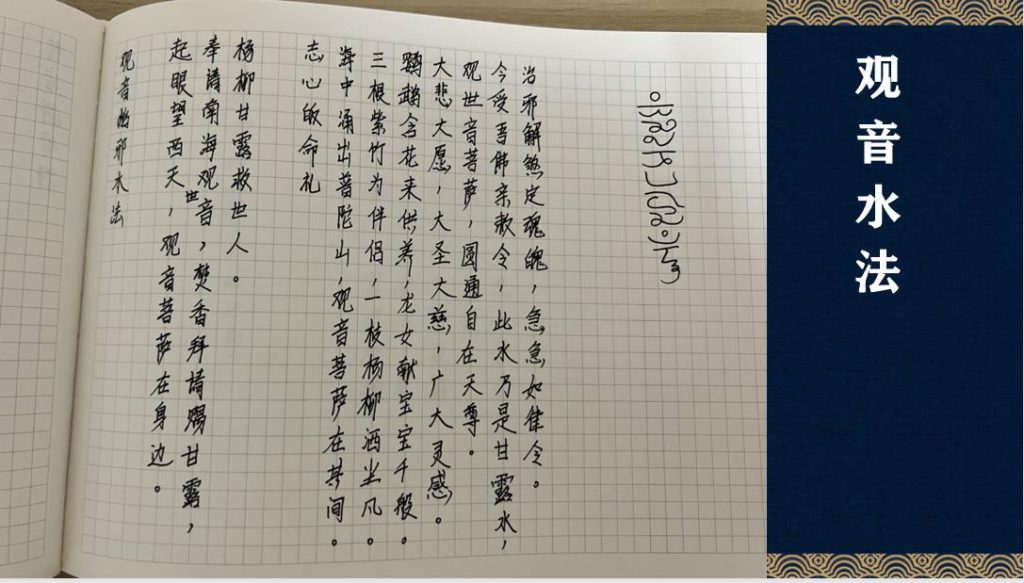 观音治邪水法
起眼望西天，观音菩萨在身边。
奉请南海观世音，焚香拜请赐甘露，
杨柳甘露救世人。
志心皈命礼
海中涌出普陀山，观音菩萨在其间。
三根紫竹为伴侣，一枝杨柳洒尘凡。
鹦鹉含花来供养，龙女献宝宝千般。
大悲大愿，大圣大慈，广大灵感。
观世音菩萨，圆通自在天尊。
今受吾佛亲敕令，此水乃是甘露水，
治邪解煞定魂魄，急急如佳令。
观音水法